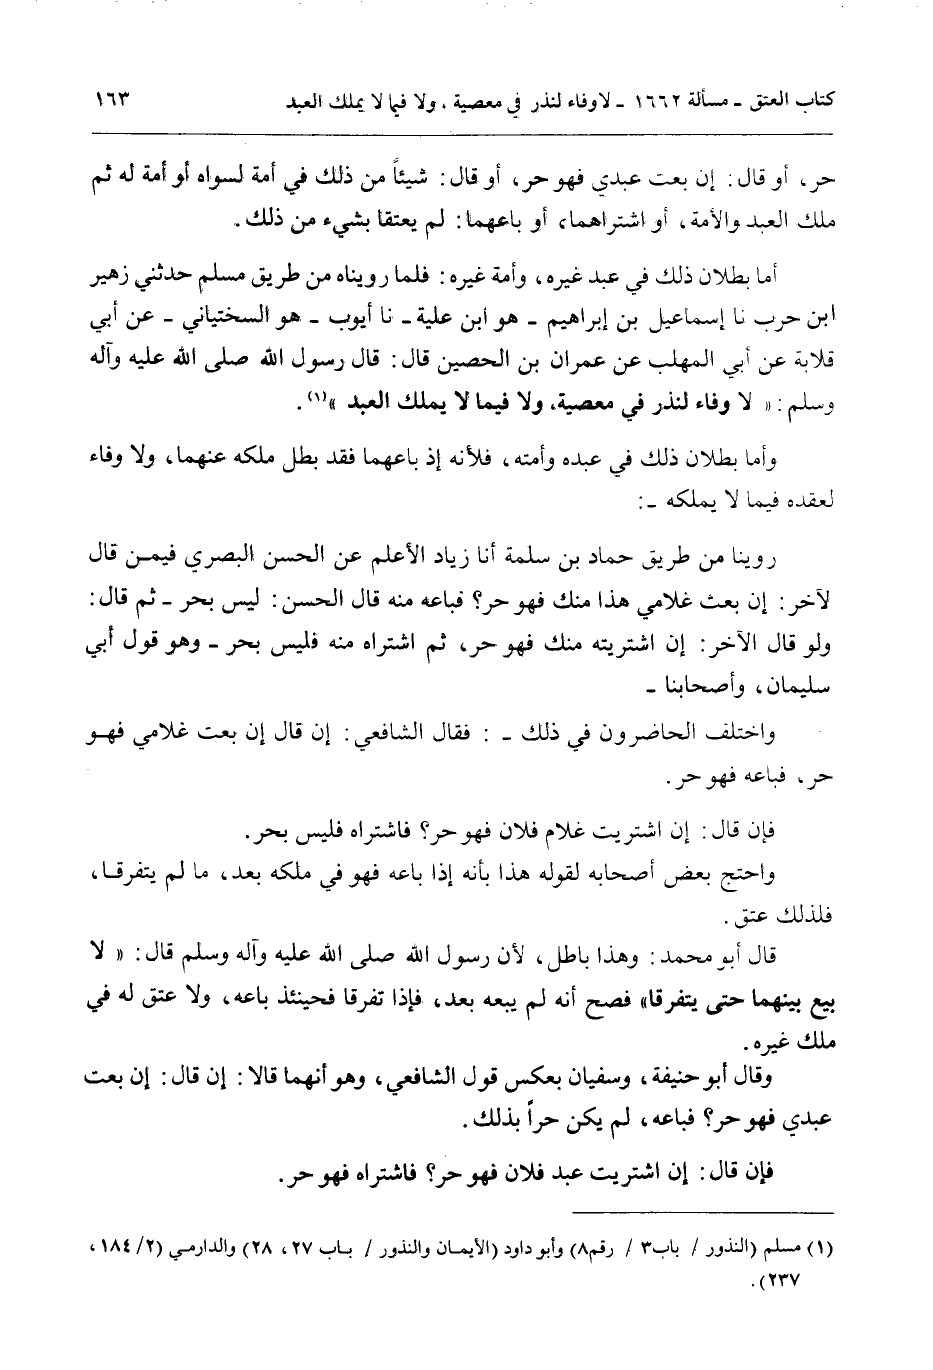 كتاب العتق ـ مسألة ١٦٦٢ ـ لا وفاء لنذر في معصية ، ولا فيما لا يملك العبد ١٦٣
حر، أو قال: إن بعت عبدي فهو حر، أو قال: شيئاً من ذلك في أمة لسواه أو أمة له ثم
ملك العبد والأمة، أو اشتراهما، أو باعهما: لم يعتقا بشيء من ذلك.
أما بطلان ذلك في عبد غيره، وأمة غيره: فلما رويناه من طريق مسلم حدثني زهير
ابن حرب نا إسماعيل بن إبراهيم ـ هو ابن علية ـ نا أيوب ـ هو السختياني ـ عن أبي
قلابة عن أبي المهلب عن عمران بن الحصين قال: قال رسول الله صلى الله عليه وآله
وسلم: « لا وفاء لنذر في معصية، ولا فيما لا يملك العبد »(١).
وأما بطلان ذلك في عبده وأمته، فلأنه إذ باعهما فقد بطل ملكه عنهما، ولا وفاء
لعقده فيما لا يملكه ـ:
روينا من طريق حماد بن سلمة أنا زياد الأعلم عن الحسن البصري فيمن قال
لآخر: إن بعت غلامي هذا منك فهو حر؟ فباعه منه قال الحسن: ليس بحر ـ ثم قال:
ولو قال الآخر: إن اشتريته منك فهو حر، ثم اشتراه منه فليس بحر ـ وهو قول أبي
سليمان، وأصحابنا ـ
واختلف الحاضرون في ذلك ـ : فقال الشافعي: إن قال إن بعت غلامي فهو
حر، فباعه فهو حر.
فإن قال: إن اشتريت غلام فلان فهو حر؟ فاشتراه فليس بحر.
واحتج بعض أصحابه لقوله هذا بأنه إذا باعه فهو في ملكه بعد، ما لم يتفرقا،
فلذلك عتق.
قال أبو محمد: وهذا باطل، لأن رسول الله صلى الله عليه وآله وسلم قال: « لا
بيع بينهما حتى يتفرقا» فصح أنه لم يبعه بعد، فإذا تفرقا فحينئذ باعه، ولا عتق له في
ملك غيره.
وقال أبو حنيفة، وسفيان بعكس قول الشافعي، وهو أنهما قالا: إن قال: إن بعت
عبدي فهو حر؟ فباعه، لم يكن حراً بذلك.
فإن قال: إن اشتريت عبد فلان فهو حر؟ فاشتراه فهو حر.
(١) مسلم (النذور / باب٣ / رقم٨) وأبو داود (الأيمان والنذور / باب ٢٧، ٢٨) والدارمي (٢/ ١٨٤،
٢٣٧).